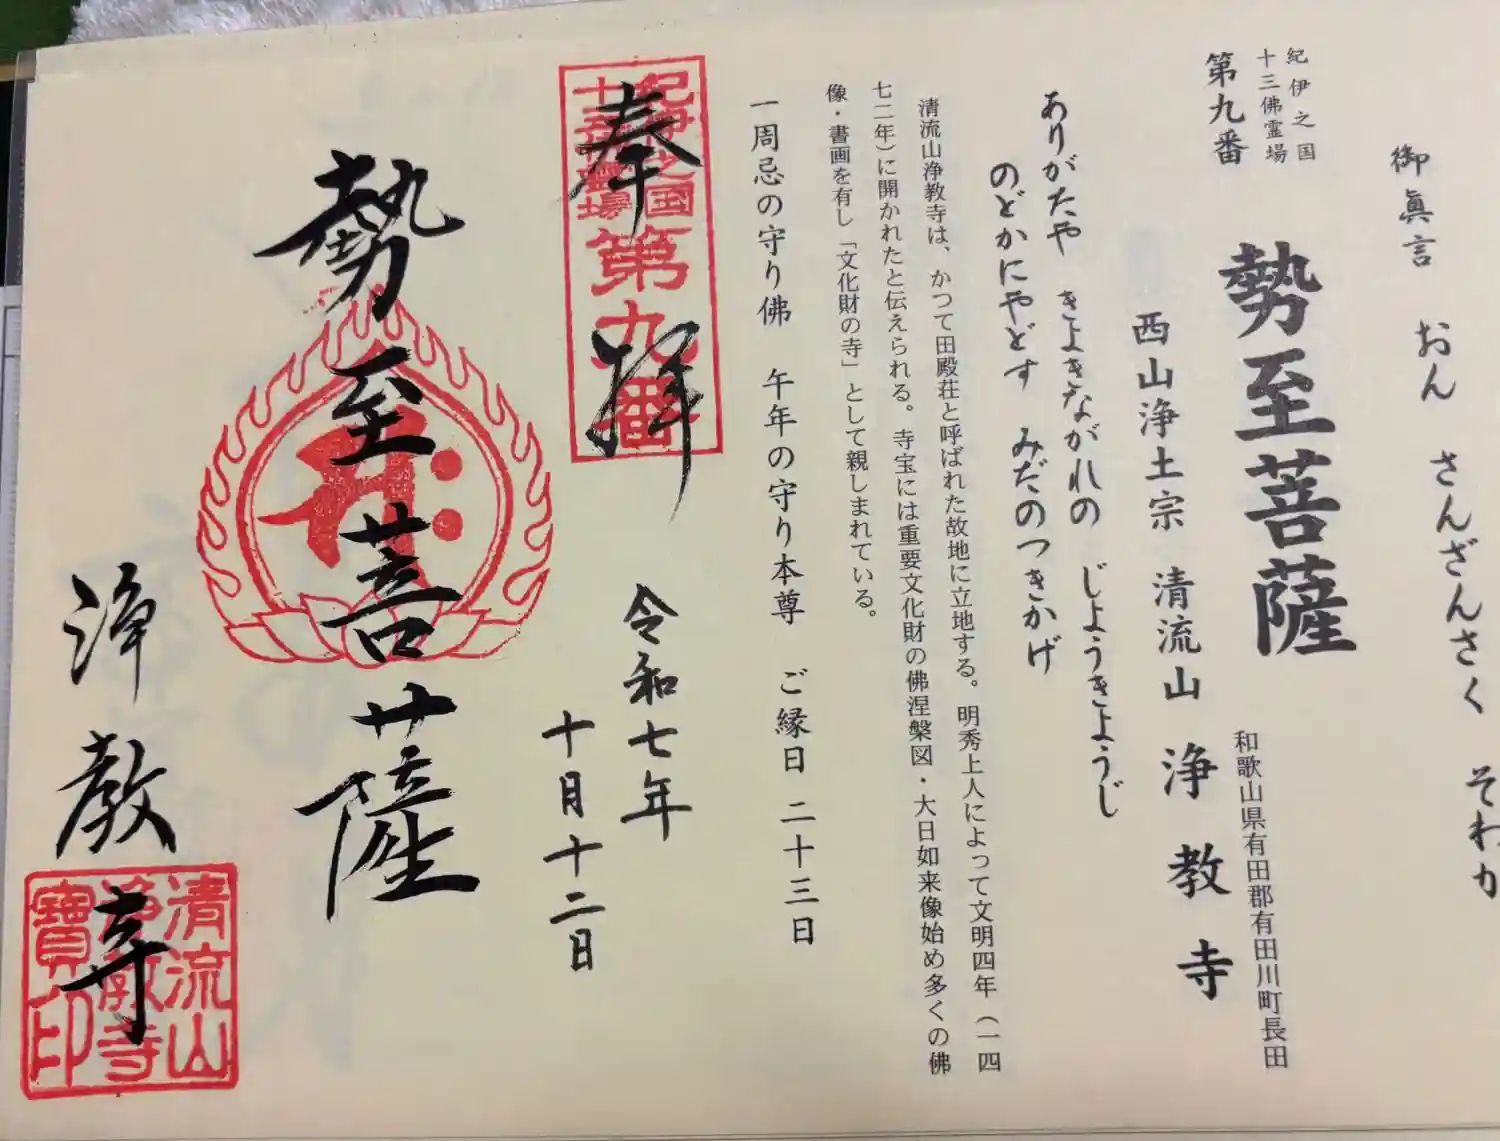 御眞言 おん さんざんさく そわか
紀伊之国
十三佛霊場
第九番
勢至菩薩
和歌山県有田郡有田川町長田
西山浄土宗 清流山 浄教寺
ありがたや きよきながれの じようきようじ
のどかにやどす みだのつきかげ
清流山浄教寺は、かつて田殿荘と呼ばれた故地に立地する。明秀上人によって文明四年(一四
七二年)に開かれたと伝えられる。寺宝には重要文化財の佛涅槃図・大日如来像始め多くの佛
像・書画を有し「文化財の寺」として親しまれている。
一周忌の守り佛 午年の守り本尊 ご縁日 二十三日
奉拝
紀伊之国
十三佛霊場
第九番
令和七年
十月十二日
勢至菩薩
浄教寺
清流山
浄教寺
寶印